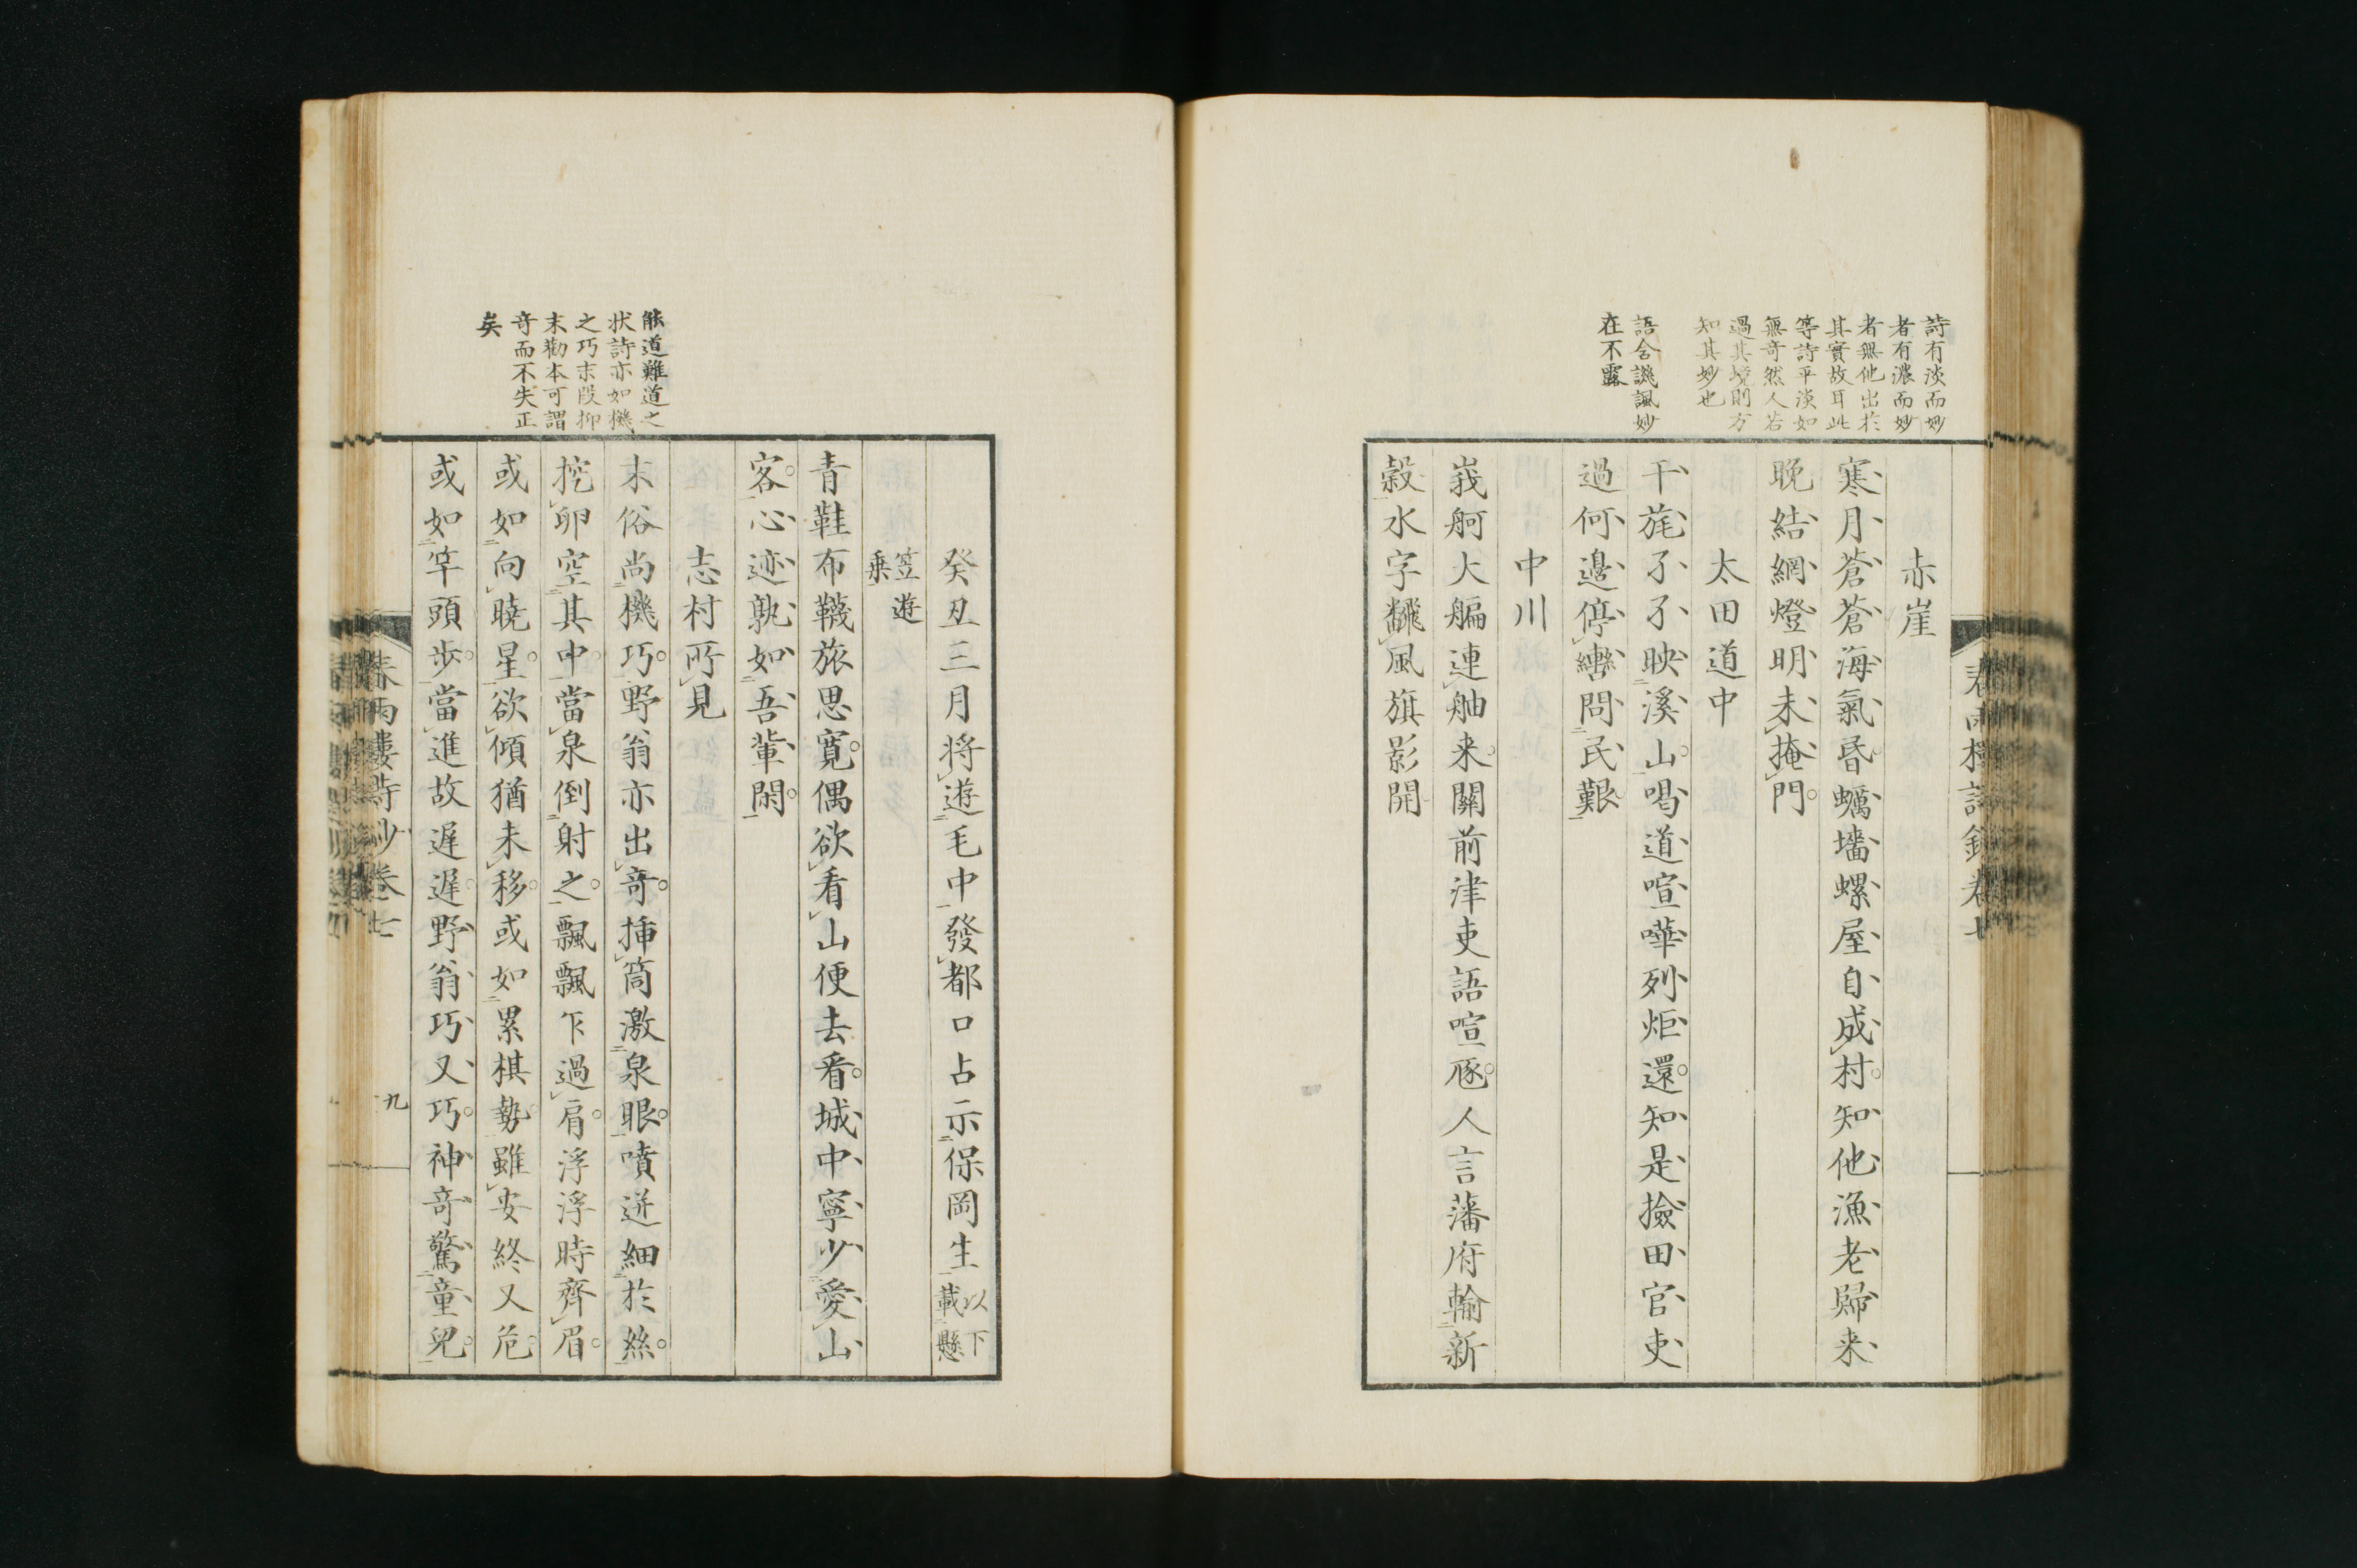 詩有淡而妙
者有濃而妙
者無他出於
其實故耳此
等詩平淡如
無奇然人若
過其境則方
知其妙也
語含譏諷妙
在不露
赤崖
寒月蒼蒼海氣昏蠣墻螺屋自成村知他漁老歸来
晚結網燈明未掩門
太田道中
干旄孑孑映溪山喝道喧嘩列炬還知是撿田官吏
過何邊停轡問民艱
中川
峩舸大艑連舳来關前津吏語喧豗人言藩府輸新
穀水字飜風旗影開
能道難道之
状詩亦如機
之巧末段抑
末勸本可謂
奇而不失正
矣
癸丑三月将遊毛中發都口占示保岡生以下載懸
笠遊乗
青鞋布韈旅思寛偶欲看山便去看城中寧少愛山
客心迹孰如吾輩閑
志村所見
末俗尚機巧野翁亦出奇挿筒激泉眼噴迸細於絲
挖卵空其中當泉倒射之飄飄乍過肩浮浮時齊眉
或如向曉星欲傾猶未移或如累棋勢雖安終又危
或如竿頭歩當進故遅遅野翁巧又巧神奇驚童兒
春雨樓詩鈔卷七
九